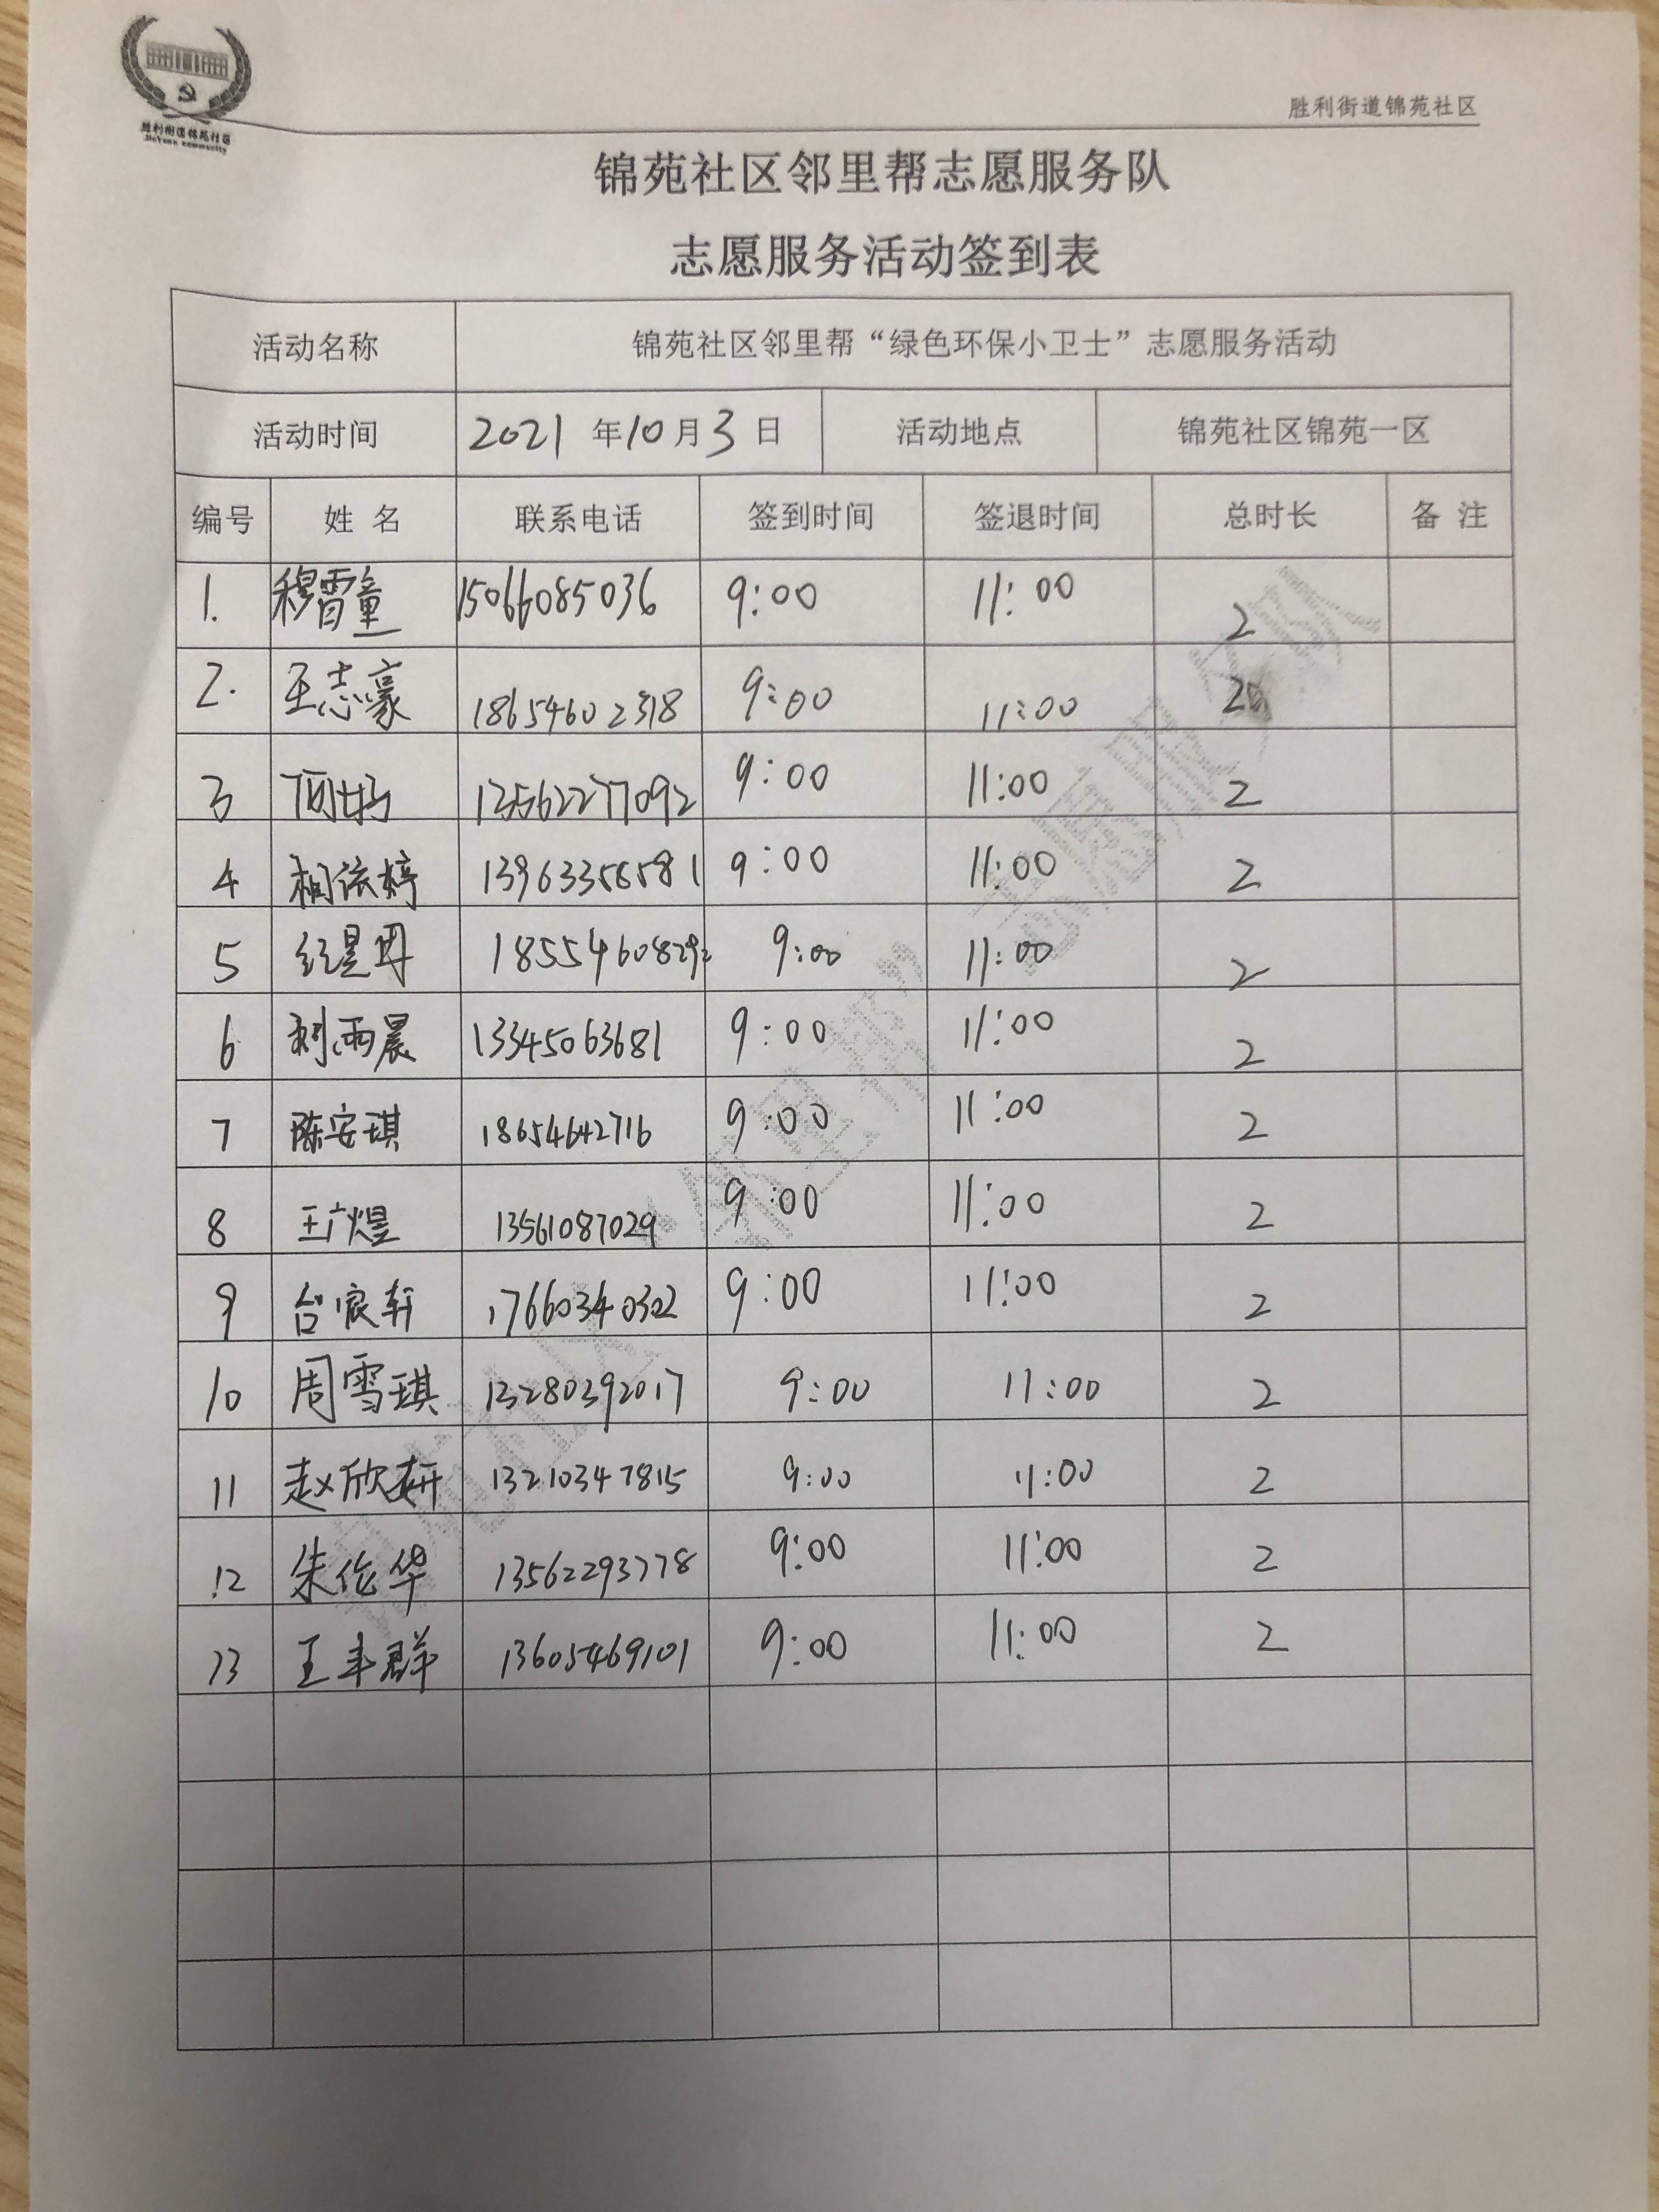 胜利街道锦苑社区
JinYuan community
胜利街道锦苑社区
锦苑社区邻里帮志愿服务队
志愿服务活动签到表
活动名称 锦苑社区邻里帮“绿色环保小卫士”志愿服务活动
活动时间 2021 年 10 月 3 日 活动地点 锦苑社区锦苑一区
编号 姓 名 联系电话 签到时间 签退时间 总时长 备 注
1. 穆霄童 15066085036 9:00 11:00 2
2. 王志豪 18654602318 9:00 11:00 2
3 13562277092 9:00 11:00 2
4 相依婷 13963356581 9:00 11:00 2
5 9:00 11:00 2
6 刘雨晨 13345063681 9:00 11:00 2
7 陈安琪 18654642716 9:00 11:00 2
8 王广煜 13561087029 9:00 11:00 2
9 台宸轩 17660340302 9:00 11:00 2
10 周雪琪 13280392017 9:00 11:00 2
11 赵欣妍 13210347815 9:00 11:00 2
12 朱伦华 13562293778 9:00 11:00 2
13 王丰群 13605469101 9:00 11:00 2
锦苑社区“邻里帮”志愿服务队